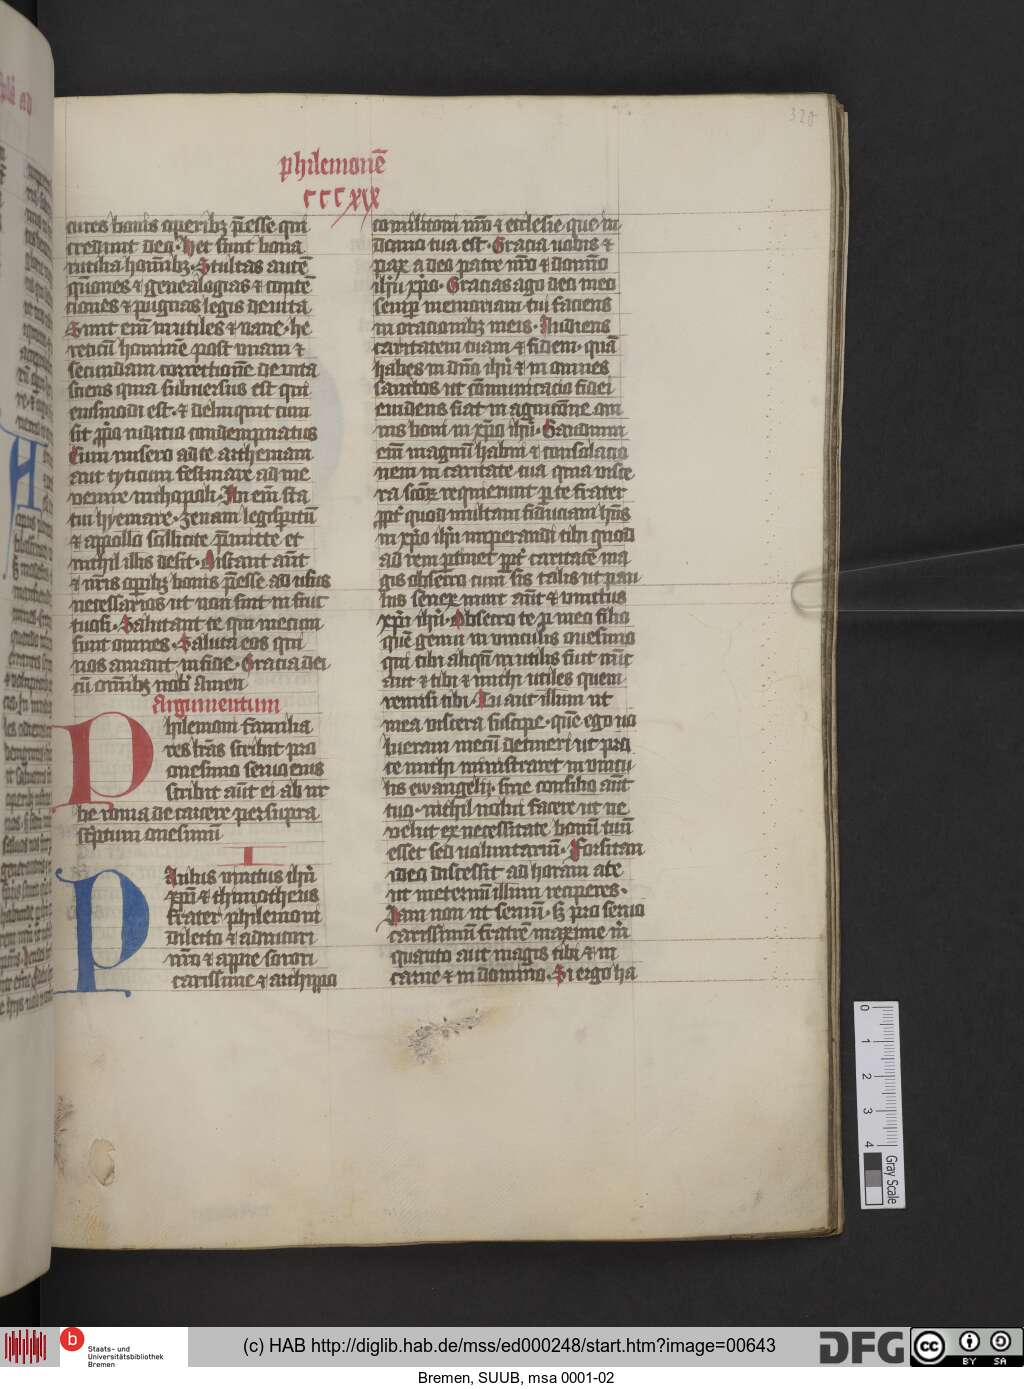 philemonē
cccxix
320
cures bonis operibꝫ p̄esse qui
credunt deo. Hec sunt bona
⁊ utilia homībꝫ. Stultas autē
q̄stiones ⁊ genealogias ⁊ contē
ciones ⁊ pugnas legis deuita
Sunt enī inutiles ⁊ vane. he
reticū hominē post vnam ⁊
secundam correctionē deuita
sciens quia subuersus est qui
eiusmodi est. ⁊ delinquit cum
sit ꝓprio iudicio condempnatus
Cum misero ad te arthemam
aut tyticum festinare ad me
venire nichopoli. Ibi enī sta
tui hyemare. zenam legisperitū
⁊ appollo sollicite p̄mitte et
nichil illis desit. Discant aūt
⁊ nr̄is operibꝫ bonis p̄esse ad usus
necessarios ut non sint in fruc
tuosi. Salutant te qui mecum
sunt omnes. Saluta eos qui
nos amant in fide. Gracia dei
cū om̄ibꝫ nobis Amen
Argumentum
Philemoni familia
res lr̄as scribit pro
onesimo seruo eius
scribit aūt ei ab ur
be roma de carcere per supra
scriptum onesimū
I
PAulus vinctus ihū
xp̄i ⁊ thimotheus
frater philemoni
dilecto ⁊ adiutori
nr̄o ⁊ appie sorori
carissime ⁊ archippo
comilitoni nr̄o ⁊ ecclesie que in
domo tua est. Gracia uobis ⁊
pax a deo patre nr̄o ⁊ domīno
ihū xp̄o. Gracias ago deo meo
semp̄ memoriam tui faciens
in oracionibꝫ meis. Audiens
caritatem tuam ⁊ fidem. quā
habes in dn̄o ihū ⁊ in omnes
sanctos ut cōmunicacio fidei
euidens fiat in agnicōne om
nis boni in xp̄o ihū. Gaudium
enī magnū habui ⁊ consolacio
nem in caritate tua quia visce
ra sc̄oꝝ requierunt per te frater
ꝓpter quod multam fiduciam hn̄s
in xp̄o ihū imperandi tibi quod
ad rem ꝑtinet ꝓpter caritatē ma
gis obsecro cum sis talis ut pau
lus senex nunc aūt ⁊ vinctus
xp̄i ihū. Obsecro te p̄ meo filio
quē genui in vinculis onesimo
qui tibi aliqn̄ inutilis fuit nūc
aut ⁊ tibi ⁊ michi utiles quem
remisi tibi. Tu aut illum ut
mea viscera suscipe. quē ego uo
lueram mecū detineri ut pro
te michi ministraret in vincu
lis ewangelij. sine consilio aūt
tuo. nichil nolui facere ut ne
velut ex necessitate bonū tuū
esset sed uoluntariū. Forsitan
ideo discessit ad horam a te
ut ineternū illum reciperes.
Iam non ut seruū. sꝫ pro seruo
carissimū fratrē maxime m̄
quanto aut magis tibi ⁊ in
carne ⁊ in domino. Si ergo ha
0 1 2 3 4
Gray Scale
b
Staats- und
Universitätsbibliothek
Bremen
(c) HAB http://diglib.hab.de/mss/ed000248/start.htm?image=00643
DFG
cc BY SA
Bremen, SUUB, msa 0001-02